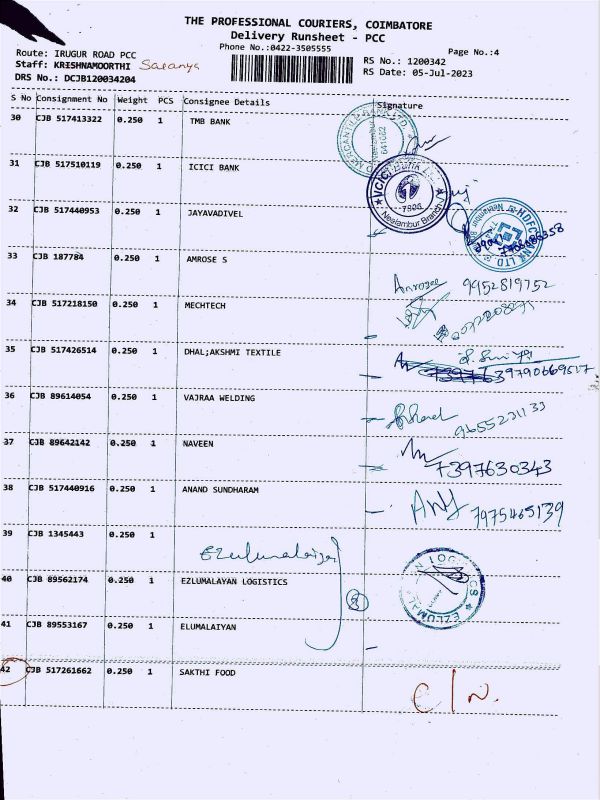 THE PROFESSIONAL COURIERS, COIMBATORE
Delivery Runsheet - PCC
Phone No.:0422-3505555
Page No.:4
Route: IRUGUR ROAD PCC
RS No.: 1200342
Staff: KRISHNAMOORTHI Saranya
RS Date: 05-Jul-2023
DRS No.: DCJB120034204
S No Consignment No Weight PCS Consignee Details Signature
30 CJB 517413322 0.250 1 TMB BANK
31 CJB 517510119 0.250 1 ICICI BANK
32 CJB 517440953 0.250 1 JAYAVADIVEL
33 CJB 187784 0.250 1 AMROSE S
Amrose 9952819752
34 CJB 517218150 0.250 1 MECHTECH
35 CJB 517426514 0.250 1 DHAL;AKSHMI TEXTILE
36 CJB 89614054 0.250 1 VAJRAA WELDING
9655231133
37 CJB 89642142 0.250 1 NAVEEN
7397630343
38 CJB 517440916 0.250 1 ANAND SUNDHARAM
7975465139
39 CJB 1345443 0.250 1
Ezlumalaiyan
40 CJB 89562174 0.250 1 EZLUMALAYAN LOGISTICS
3
41 CJB 89553167 0.250 1 ELUMALAIYAN
42 CJB 517261662 0.250 1 SAKTHI FOOD
C/N.